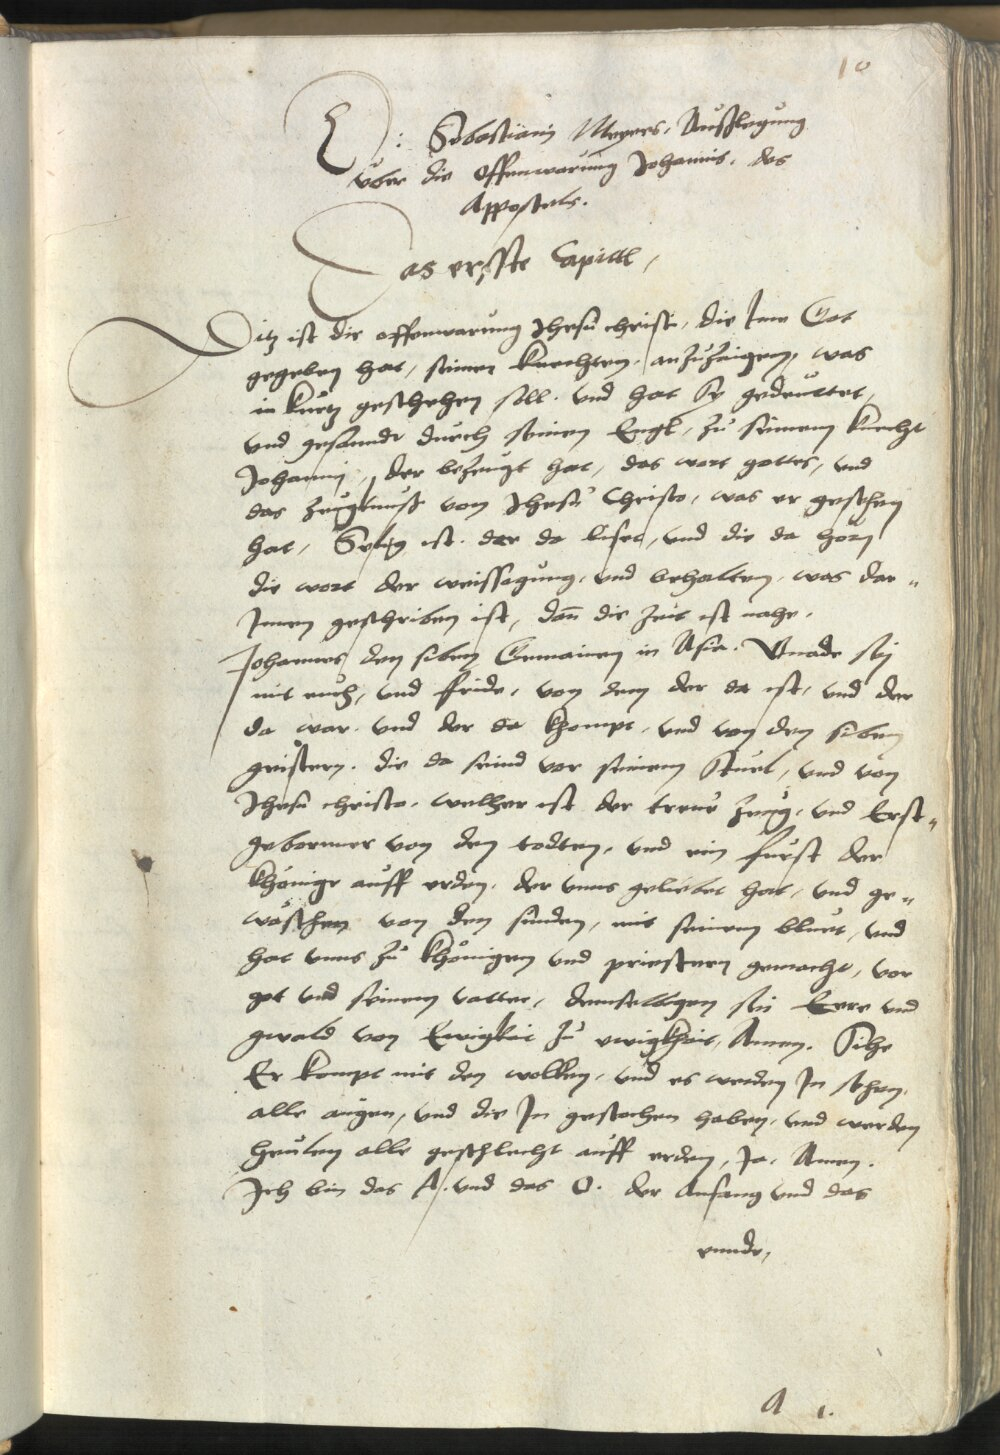 10
D: Sebastiani Meyers, Außlegung
über die Offennwarung Johannis, des
Appostels.
Das erſste Capittl,
Ditz ist die offennwarung Jhesu christi, die Ime Got
gegeben hat, seinen knechten anzuzaigen, was
in kurtz geschehen soll. vnd hat sy gedeuttet,
vnd gesanndt durch seinen Engl, zu seinem knecht
Johanni, der bezeugt hat, das wort gottes, vnd
das zeugknuß von Jhesu Christo, was er gesehen
hat, Selig ist. der da liset, vnd die da hörn
die wort der weissagung, vnd behalten, was dar=
Innen geschriben ist, dan̄ die zeit ist nahe.
Johannes den siben Gemainen in Asia. Gnade sey
mit euch, vnd fride, von dem der da ist, vnd der
da war. vnd der da khompt. vnd von den siben
geistern. die da seind vor seinem Stuel, vnd von
Jhesu christo. welher ist der treue zeug, vnd Erst=
gebornner von den todten, vnd ein fürst der
khönige auff erden. der vnns geliebet hat, vnd ge=
wäschen von den sünden, mit seinem bluet, vnd
hat vnns zu khönigen vnd priestern gemacht, vor
got vnd seinem vatter, demselbigen sey Eere vnd
gwald von Ewigkait zu ewigkhait, Amen. Sihe
Er kompt mit den wolken, vnd es werden In sehen,
alle augen, vnd die In gestochen haben, vnd werden
heulen alle geschlecht auff erden, Ja. Amen.
Ich bin das A. vnd das O. der Anfang vnd das
ennde,
A 1.